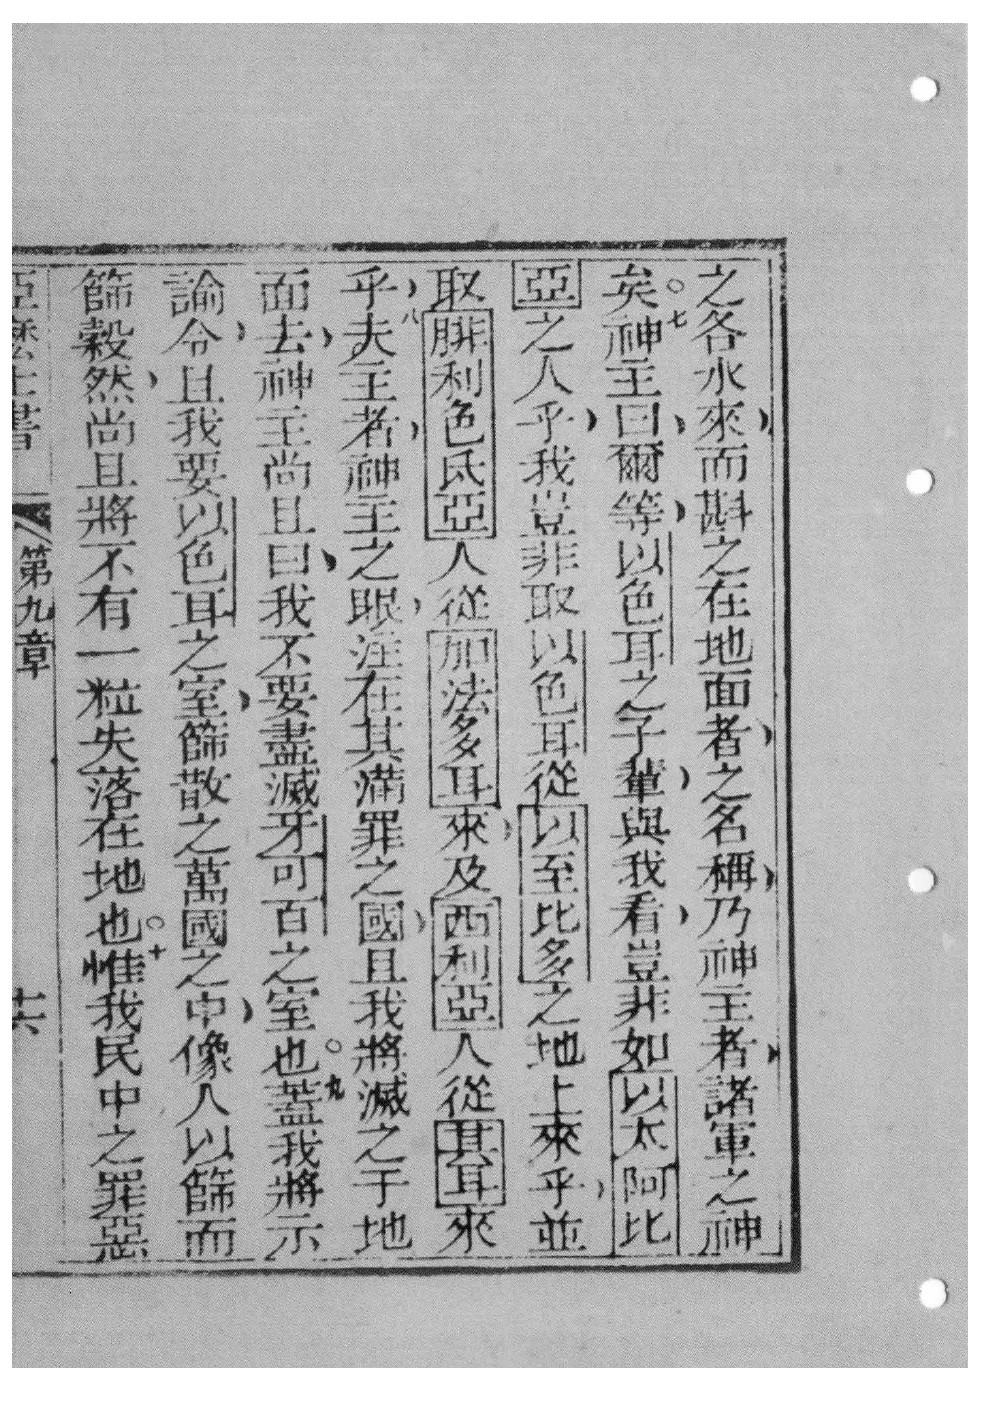 之各水來而斟之在地面者之名稱乃神主者諸軍之神
矣○七神主曰爾等以色耳之子輩與我看豈非如以太阿比
亞之人乎我豈非取以色耳從以至比多之地上來乎並
取腓利色氐亞人從加法多耳來及西利亞人從其耳來
乎八夫主者神主之眼注在其滿罪之國且我將滅之于地
面去神主尚且曰我不要盡滅牙可百之室也○九蓋我將示
論令且我要以色耳之室篩散之萬國之中像人以篩而
篩穀然尚且將不有一粒失落在地也○十惟我民中之罪惡
亞麽士書 第九章 十六